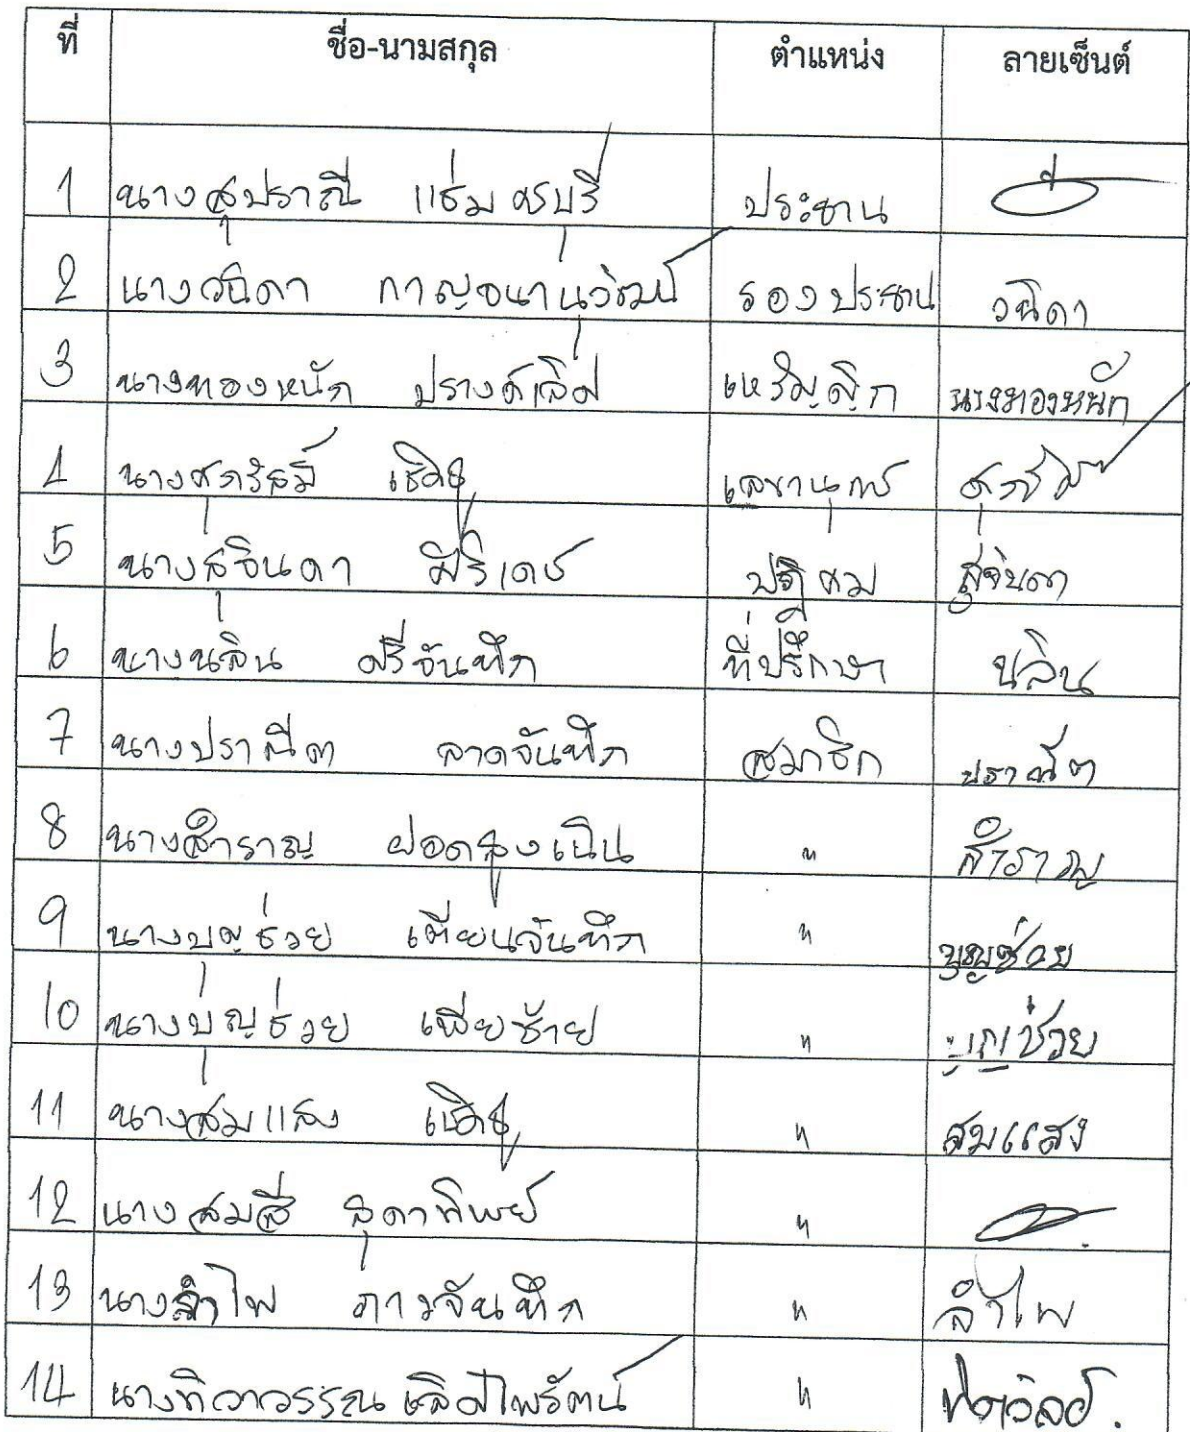 ที่ ชื่อ-นามสกุล ตำแหน่ง ลายเซ็นต์
1 นางสุปราณี แช่มครบุรี ประธาน
2 นางวนิดา กาญจนานุวัฒน์ รองประธาน วนิดา
3 นางทองหนัก ปรางค์เลิศ เหรัญญิก นางทองหนัก
4 นางศุภรัสมิ์ เลขานุการ
5 นางสุจินดา มีริเดช ปฏิคม สุจินดา
6 นางนลิน ศรีจันทึก ที่ปรึกษา นลิน
7 นางปราณีต ลาดจันทึก สมาชิก ปราณีต
8 นางสำราญ ยอดสูงเนิน " สำราญ
9 นางบุญช่วย เตียนจันทึก " บุญช่วย
10 นางบุญช่วย เพียซ้าย " บุญช่วย
11 นางสมแสง " สมแสง
12 นางสมสี สุดาทิพย์ "
13 นางลำไพ ภาวจันทึก " ลำไพ
14 นางทิวาวรรณ เลิศไพรัตน์ "